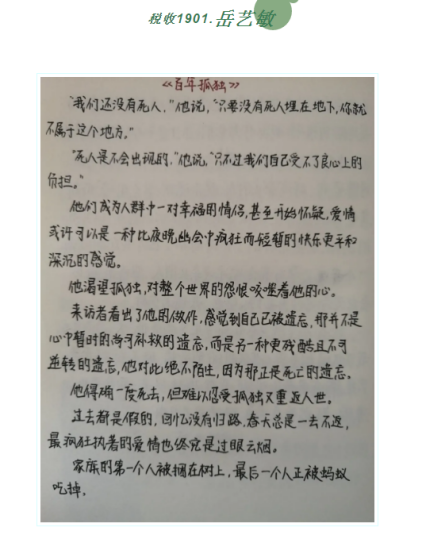 税收1901.岳艺敏
《百年孤独》
"我们还没有死人，"他说，"只要没有死人埋在地下，你就
不属于这个地方。"
"死人是不会出现的，"他说，"只不过我们自己受不了良心上的
负担。"
他们成为人群中一对幸福的情侣，甚至开始怀疑，爱情
或许可以是一种比夜晚幽会中疯狂而短暂的快乐更平和
深沉的感觉。
他渴望孤独，对整个世界的怨恨咬噬着他的心。
来访者看出了他的做作，感觉到自己已被遗忘，那并不是
心中暂时的尚可补救的遗忘，而是另一种更残酷且不可
逆转的遗忘，他对此绝不陌生，因为那正是死亡的遗忘。
他得确一度死去，但难以忍受孤独又重返人世。
过去都是假的，回忆没有归路，春天总是一去不返，
最疯狂执着的爱情也终究是过眼云烟。
家族的第一个人被捆在树上，最后一个人正被蚂蚁
吃掉。